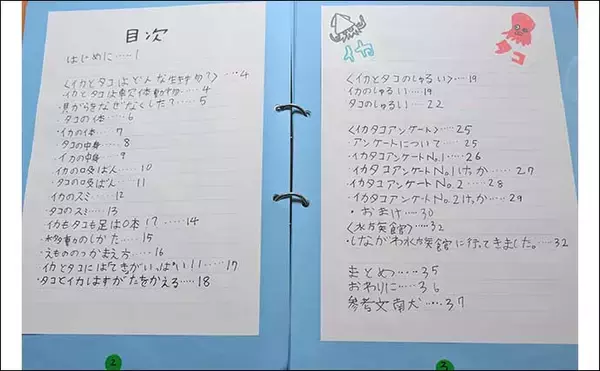 目次
はじめに……1
〈イカとタコはどんな生き物？〉……4
イカとタコは軟体動物……4
・貝がらをなぜなくした？……5
・タコの体……6
・イカの体……7
・タコの中身……8
・イカの中身……9
・イカの吸ばん……10
・タコの吸ばん……11
イカのスミ……12
・タコのスミ……13
イカもタコも足は0本！？……14
・移動のしかた……15
・えもののつかまえ方……16
イカとタコにはてきがいっぱい！！……17
・タコとイカはすがたをかえる……18
2
イカ
タコ
〈イカとタコのしゅるい〉……19
イカのしゅるい……19
タコのしゅるい……22
〈イカタコアンケート〉……25
・アンケートについて……25
・イカタコアンケートNo.1……26
・イカタコアンケートNo.1けっか……27
・イカタコアンケートNo.2……28
・イカタコアンケートNo.2けっか……29
・おまけ……30
〈水族館〉……32
・しながわ水族館に行ってきました。……32
まとめ……35
おわりに……36
参考文献……37
3